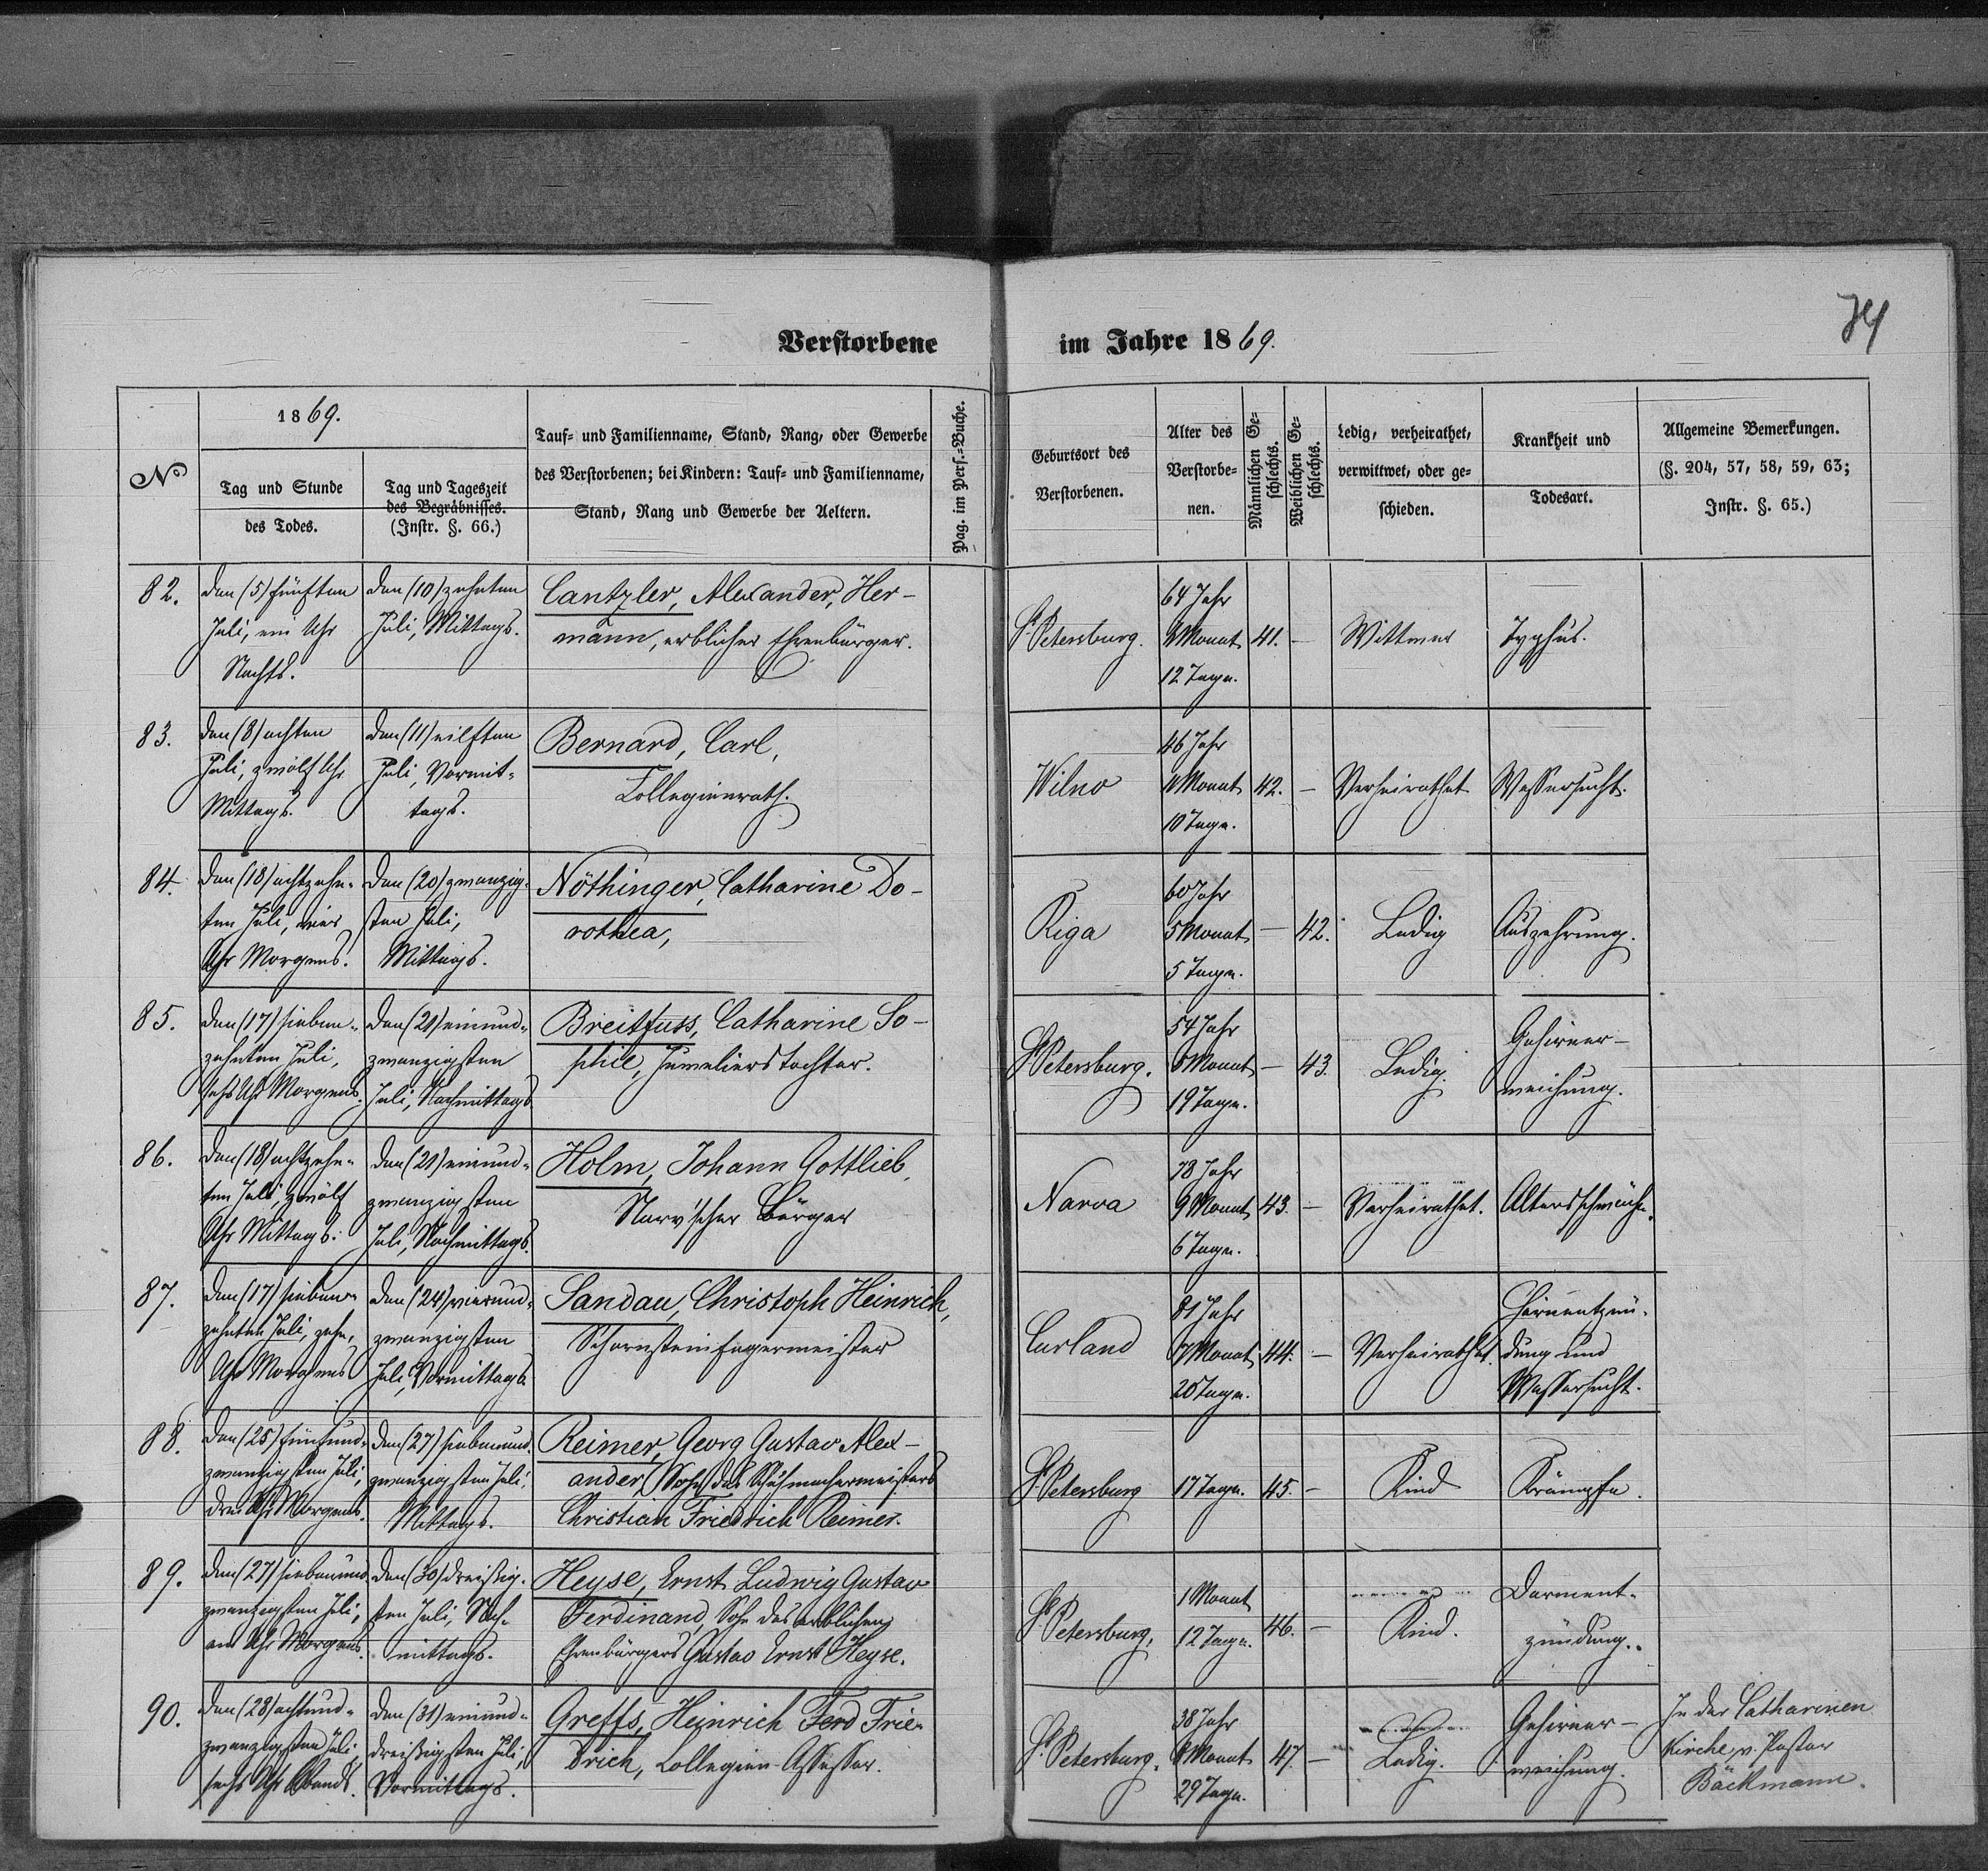 74
Verstorbene im Jahre 1869.
No
1869.
Tag und Stunde
des Todes.
Tag und Tageszeit
des Begräbnisses.
(Instr. §. 66.)
Tauf= und Familienname, Stand, Rang, oder Gewerbe
des Verstorbenen; bei Kindern: Tauf= und Familienname,
Stand, Rang und Gewerbe der Aeltern.
Pag. im Pers.=Buche.
Geburtsort des
Verstorbenen.
Alter des
Verstorbe=
nen.
Männlichen Ge=
schlechts.
Weiblichen Ge=
schlechts.
Ledig, verheirathet,
verwittwet, oder ge=
schieden.
Krankheit und
Todesart.
Allgemeine Bemerkungen.
(§. 204, 57, 58, 59, 63;
Instr. §. 65.)
82.
den (5) fünften
Juli, ein Uhr
Nachts.
den (10) zehnten
Juli, Mittags.
Cantzler, Alexander, Her-
mann, erblicher Ehrenbürger.
St. Petersburg.
64 Jahr
Monat
12 Tage.
41.
-
Wittwer
Typhus.
83.
den (8) achten
Juli, zwölf Uhr
Mittags.
den (11) eilften
Juli, Vormit-
tags.
Bernard, Carl,
Collegienrath.
Wilno
46 Jahr
Monat
10 Tage.
42.
-
Verheirathet
Wassersucht.
84.
den (18) achtzehn-
ten Juli, vier
Uhr Morgens.
den (20) zwanzig-
sten Juli,
Mittags.
Nöthinger, Catharine Do-
rothea,
Riga
60 Jahr
5 Monat
5 Tage.
-
42.
Ledig
Auszehrung.
85.
den (17) sieben-
zehnten Juli,
sechs Uhr Morgens.
den (21) einund-
zwanzigsten
Juli, Nachmittags
Breitfuss, Catharine So-
phie, Juwelierstochter.
St. Petersburg.
54 Jahr
Monat
19 Tage.
-
43.
Ledig.
Gehirner-
weichung.
86.
den (18) achtzehn-
ten Juli, zwölf
Uhr Mittags.
den (21) einund-
zwanzigsten
Juli, Nachmittags.
Holm, Johann Gottlieb,
Narv'scher Bürger
Narva
78 Jahr
9 Monat
6 Tage.
43.
-
Verheirathet.
Altersschwäche.
87.
den (17) sieben-
zehnten Juli, zehn
Uhr Morgens
den (24) vierund-
zwanzigsten
Juli, Vormittags.
Sandau, Christoph Heinrich,
Schornsteinfegermeister
Curland
81 Jahr
Monat
20 Tage.
44.
-
Verheirathet.
Hirnentzün-
dung und
Wassersucht.
88.
den (25) fünfund-
zwanzigsten Juli,
drei Uhr Morgens.
den (27) siebenund-
zwanzigsten Juli,
Mittags.
Reimer, Georg Gustav Alex-
ander, Sohn des Schuhmachermeisters
Christian Friedrich Reimer.
St. Petersburg
17 Tage.
45.
-
Kind
Krämpfe.
89.
den (27) siebenund-
zwanzigsten Juli,
ein Uhr Morgens.
den (30) dreißig-
sten Juli, Nach-
mittags.
Heyse, Ernst Ludwig Gustav
Ferdinand, Sohn des erblichen
Ehrenbürgers Gustav Ernst Heyse.
St. Petersburg,
1 Monat
12 Tage.
46.
-
Kind.
Darment-
zündung.
90.
den (28) achtund-
zwanzigsten Juli
sechs Uhr Abends.
den (31) einund-
dreißigsten Juli,
Vormittags.
Greffs, Heinrich Ferd Frie-
drich, Collegien-Assessor.
St. Petersburg.
38 Jahr
Monat
29 Tage.
47.
-
Ledig.
Gehirner-
weichung.
In der Catharinen
Kirche, v. Pastor
Bäckmann.